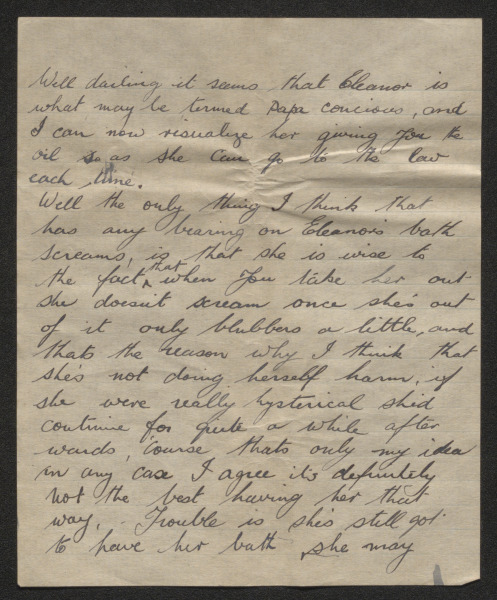 Well darling it seems that Eleanor is
what may be termed Papa concious, and
I can now visualize her giving you the
oil so as she can go to the lav
each time.
Well the only thing I think that
has any bearing on Eleanor's bath
screams, is that she is wise to
the fact that when you take her out
she doesn't scream once she's out
of it only blubbers a little, and
thats the reason why I think that
she's not doing herself harm, if
she were really hysterical she'd
continue for quite a while after
wards, course thats only my idea
in any case I agree it's definitely
not the best having her that
way, . Trouble is she's still got
to have her bath, she may